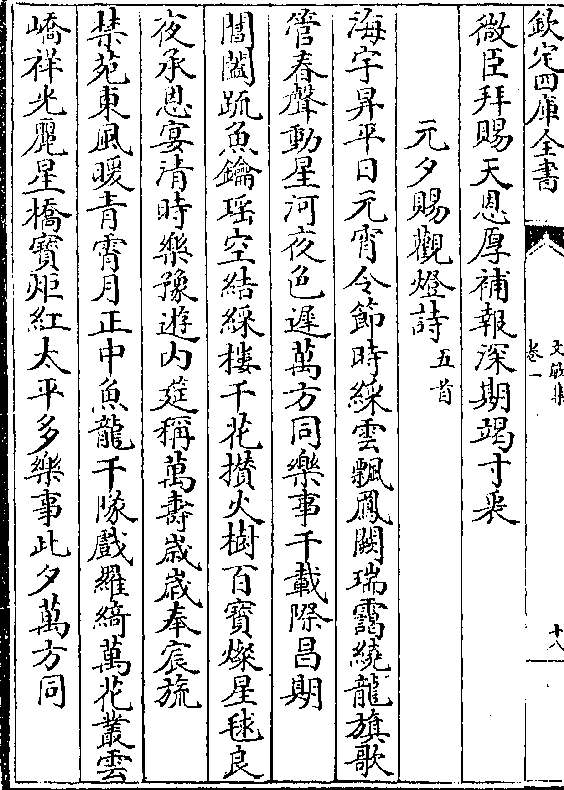 欽定四庫全書
文敏集
卷一
十八
微臣拜賜天恩厚補報深期竭寸衷
元夕賜觀燈詩五首
海宇昇平日元宵令節時綵雲飄鳳闕瑞靄繞龍旗歌
管春聲動星河夜色遲萬方同樂事千載際昌期
閶闔疏魚鑰瑶空結綵樓千花攅火樹百寶燦星毬良
夜承恩宴清時樂豫遊内筵稱萬壽歳歳奉宸旒
禁苑東風暖青霄月正中魚龍千隊戲羅綺萬花叢雲
嶠祥光麗星橋寶炬紅太平多樂事此夕萬方同